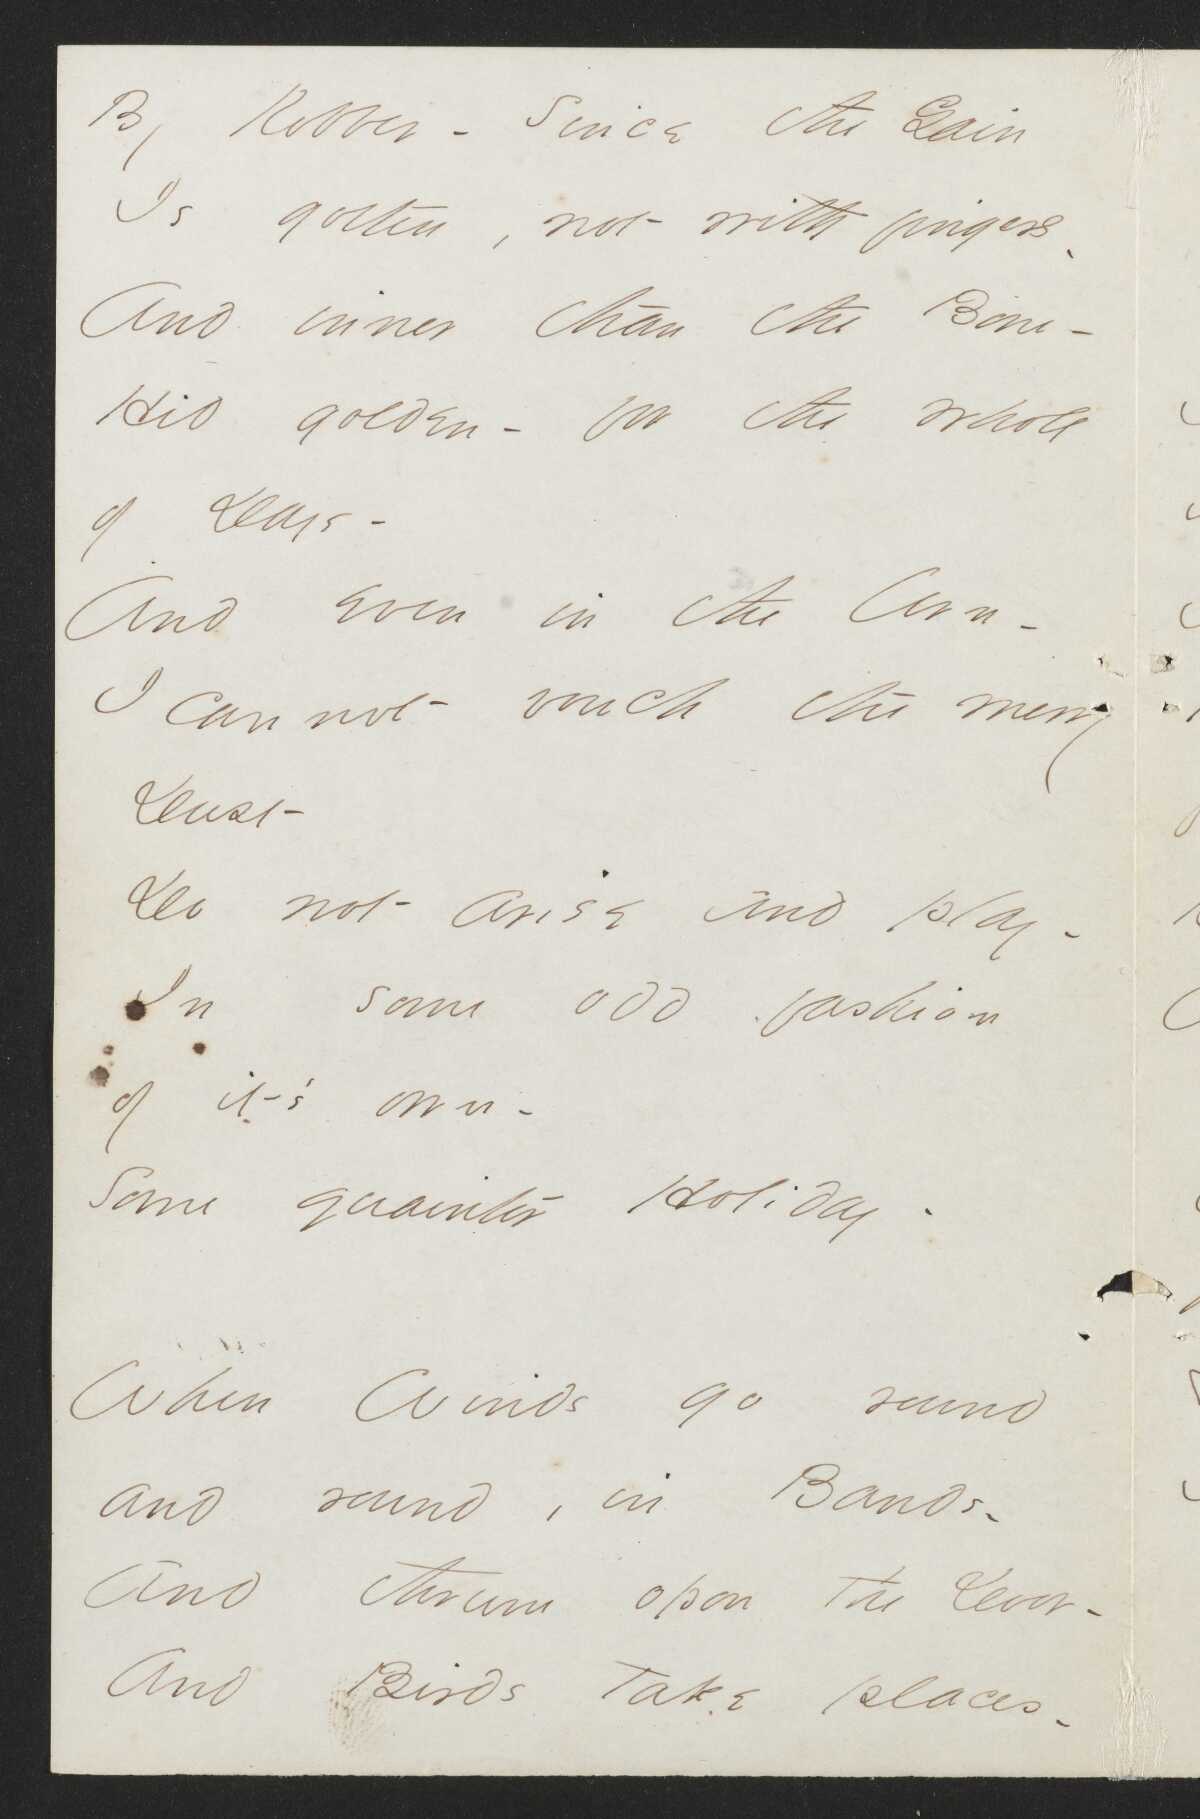 By Robber - Since the Gain
Is gotten, not with fingers.
And inner than the Bone -
Hid golden - for the whole
of Days -
And even in the Urn -
I cannot vouch the merry
Dust -
Do not arise and play -
In some odd fashion
of it's own -
Some quainter Holiday -
When Winds go round
and round, in Bands -
And thrum opon the Door -
And Birds take places -